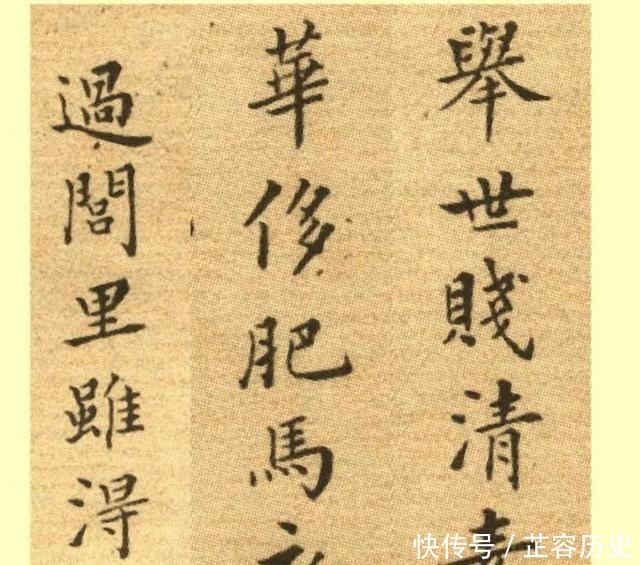 舉世賤清
華侈肥馬
過閭里雖得
快传号 / 芷容历史